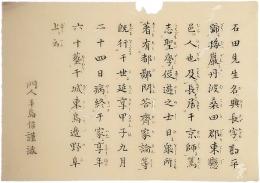 石田先生名興長字勘平
號梅巖丹波桑田郡東懸
邑人也及長居于京師篤
志聖學後進之士日衆所
著有都鄙問答齊家論等
既行于世延享甲子九月
二十四日病終于家享年
六十葬于城東鳥邊野阜
上云
門人手島信謹誌